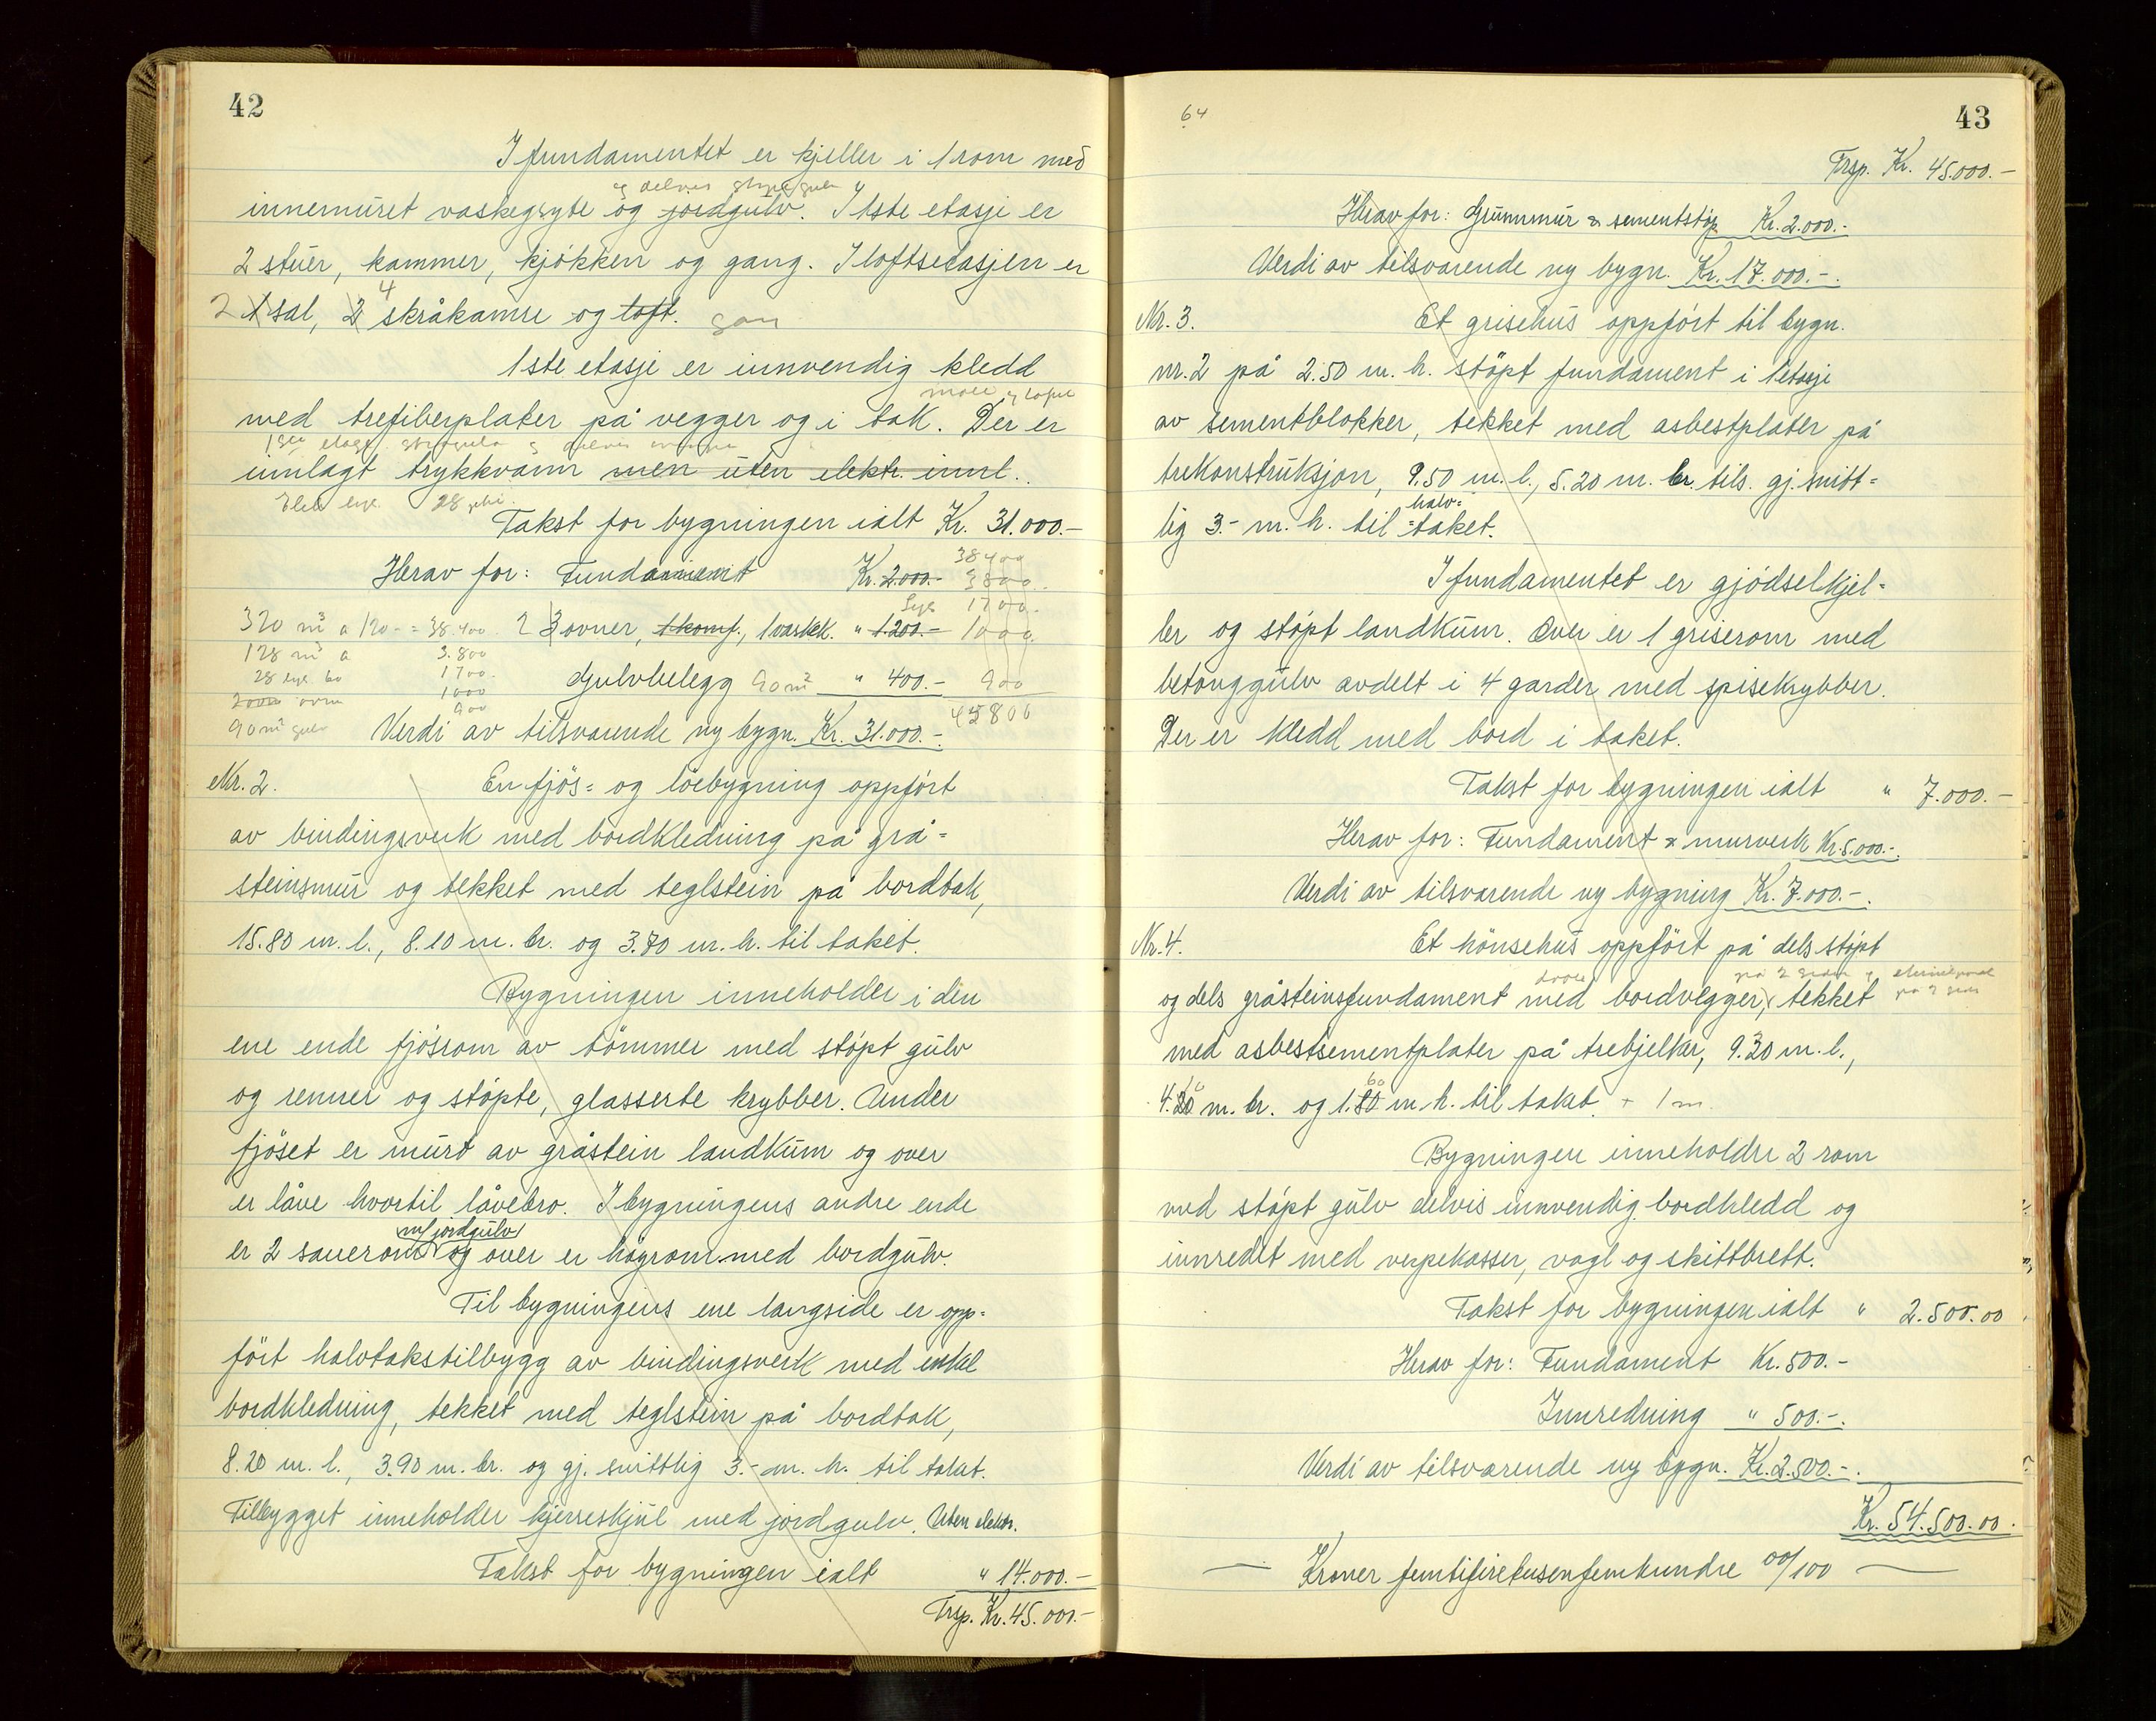 42
I fundamentet er kjeller i 1 rom med
og delvis støpt gulv
innemuret vaskegryte og jordgulv. I 1ste etasje er
2 stuer, kammer, kjøkken og gang. I loftsetasjen er
2 1 sal, 2 4 skråkamre og loft.
1ste etasje er innvendig kledd
med trefiberplater på vegger og i tak. Der er
innlagt trykkvann men uten elektr. innl.
Takst for bygningen ialt Kr. 31.000.-
38400
Herav for: Fundament Kr. 2.000.- 3800
Lys 1700.
320 m³ a 120.- = 38.400 2 3 ovner, 1 komf., 1 vaskek. " 1.200.- 1000.
128 m³ a 3.800
28 lys 60 1700. Gulvbelegg 90 m² " 400.- 900
2 ovn 1000
900
90 m² gulv Verdi av tilsvarende ny bygn. Kr. 31.000.-. 45800
Nr. 2. En fjøs- og løebygning oppført
av bindingsverk med bordkledning på grå-
steinsmur og tekket med teglstein på bordtak,
15.80 m. l., 8.10 m. br. og 3.70 m. h. til taket.
Bygningen inneholder i den
ene ende fjøsrom av tømmer med støpt gulv
og renner og støpte, glasserte krybber. Under
fjøset er murt av gråstein landkum og over
er låve hvortil låvebro. I bygningens andre ende
m/ jordgulv
er 2 sauerom og over er høyrom med bordgulv.
Til bygningens ene langside er opp-
ført halvtakstilbygg av bindingsverk med enkel
bordkledning, tekket med teglstein på bordtak,
8.20 m. l., 3.90 m. br. og gj. snittlig 3.- m. h. til taket.
Tilbygget inneholder kjerreskjul med jordgulv. Uten elektr.
Takst for bygningen ialt " 14.000.-
Trsp. Kr. 45.000.-
64
43
Trsp. Kr. 45.000.-
Herav for: Grunnmur & sementstøp Kr. 2.000.-
Verdi av tilsvarende ny bygn. Kr. 17.000.-.
Nr. 3. Et grisehus oppført til bygn.
nr. 2 på 2.50 m. h. støpt fundament i 1 etasje
av sementblokker, tekket med asbestplater på
trekonstruksjon, 9.50 m. l., 5.20 m. br. tils. gj. snitt-
halv-
lig 3.- m. h. til -taket.
I fundamentet er gjødselkjel-
ler og støpt landkum. Over er 1 griserom med
betonggulv avdelt i 4 garder med spisekrybber.
Der er kledd med bord i taket.
Takst for bygningen ialt " 7.000.-
Herav for: Fundament & murverk Kr. 5.000.-.
Verdi av tilsvarende ny bygning Kr. 7.000.-.
Nr. 4. Et hønsehus oppført på dels støpt
på 2 sider og
på 2 sider
og dels gråsteinsfundament med bordvegger, tekket
med asbestsementplater på trebjelker, 9.30 m. l.,
60
4.20 m. br. og 1.80 m. h. til taket. + 1 m.
Bygningen inneholder 2 rom
med støpt gulv delvis innvendig bordkledd og
innredet med verpekasser, vagl og skittbrett.
Takst for bygningen ialt " 2.500.00
Herav for: Fundament Kr. 500.-
Innredning " 500.-.
Verdi av tilsvarende ny bygn. Kr. 2.500.-.
Kr. 54.500.00.
Kroner femtifiretusenfemhundre 00/100